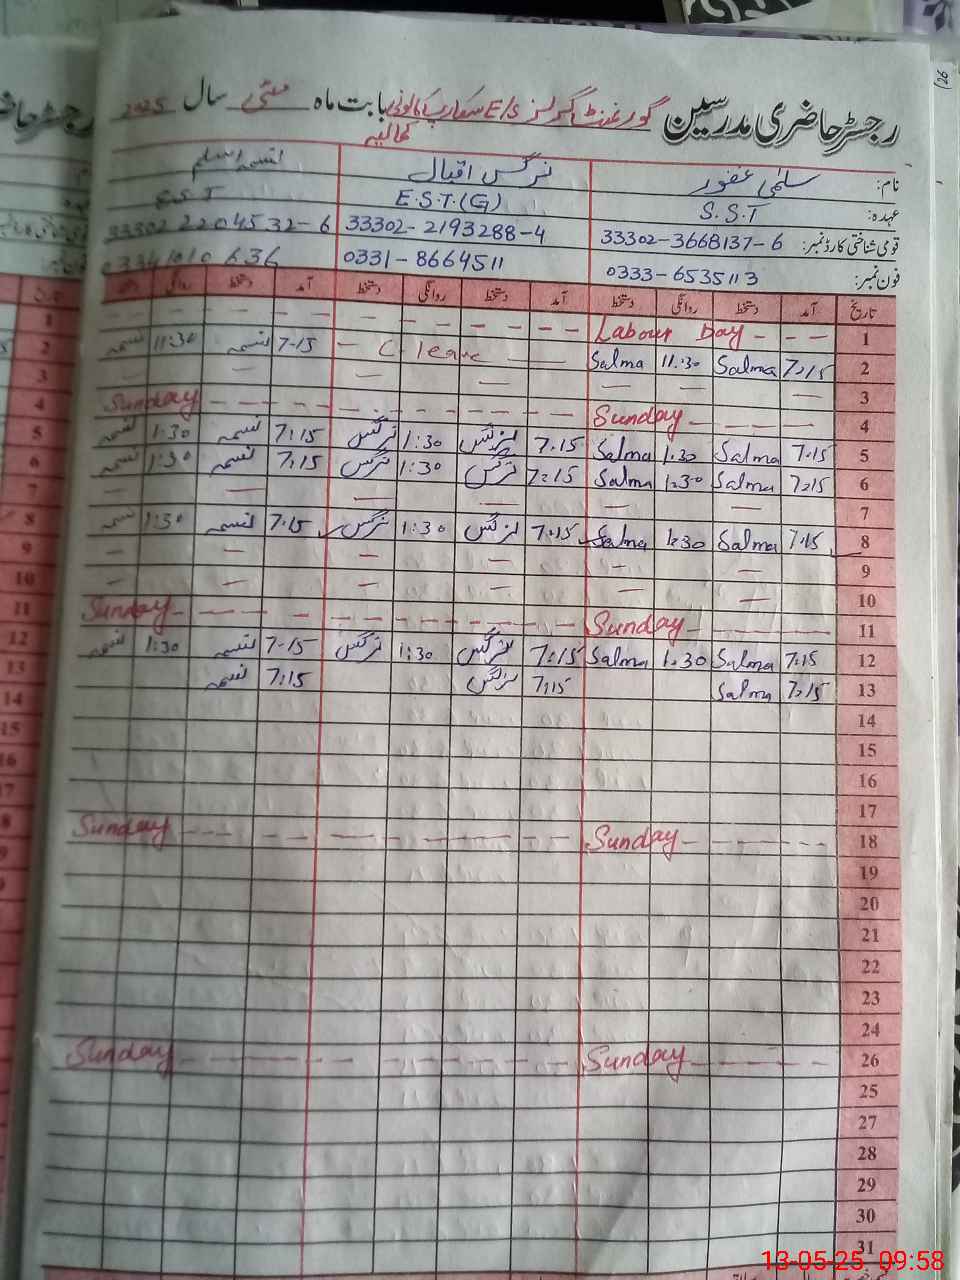 رجسٹر حاضری مدرسین گورنمنٹ گرلز E/S سفاری کالونی بابت ماہ مئی سال 2025
کمالیہ
نام: سلمیٰ غفور نرگس اقبال نسیمہ اسلم
عہدہ: S.S.T E.S.T.(G) E.S.T
قومی شناختی کارڈ نمبر: 33302-3668137-6 33302-2193288-4 33302-2204532-6
فون نمبر: 0333-6535113 0331-8664511
تاریخ آمد دستخط روانگی دستخط آمد دستخط روانگی دستخط آمد دستخط روانگی دستخط
1 - - - Labour Day - - - - - - - - -
2 7:15 Salma 11:30 Salma - C. leave - 7-15 نسیمہ 11:30 نسیمہ
3 - - - - - - - -
4 - - - - Sunday - - - - - - - - Sunday
5 7:15 Salma 1:30 Salma 7:15 نرگس 1:30 نرگس 7:15 نسیمہ 1:30 نسیمہ
6 7:15 Salma 1:30 Salma 7:15 نرگس 1:30 نرگس 7:15 نسیمہ 1:30 نسیمہ
7 - - - - - -
8 7:15 Salma 1:30 Salma 7:15 نرگس 1:30 نرگس 7:15 نسیمہ 1:30 نسیمہ
9 - - - - - -
10 - - - - - -
11 - - - - Sunday - - - - - - - - Sunday
12 7:15 Salma 1:30 Salma 7:15 نرگس 1:30 نرگس 7-15 نسیمہ 1:30 نسیمہ
13 7:15 Salma 7:15 نرگس 7:15 نسیمہ
14
15
16
17
18 - - - - Sunday - - - - - - - - Sunday
19
20
21
22
23
24
26 - - - - Sunday - - - - - - - - Sunday
25
27
28
29
30
31
13-05-25 09:58